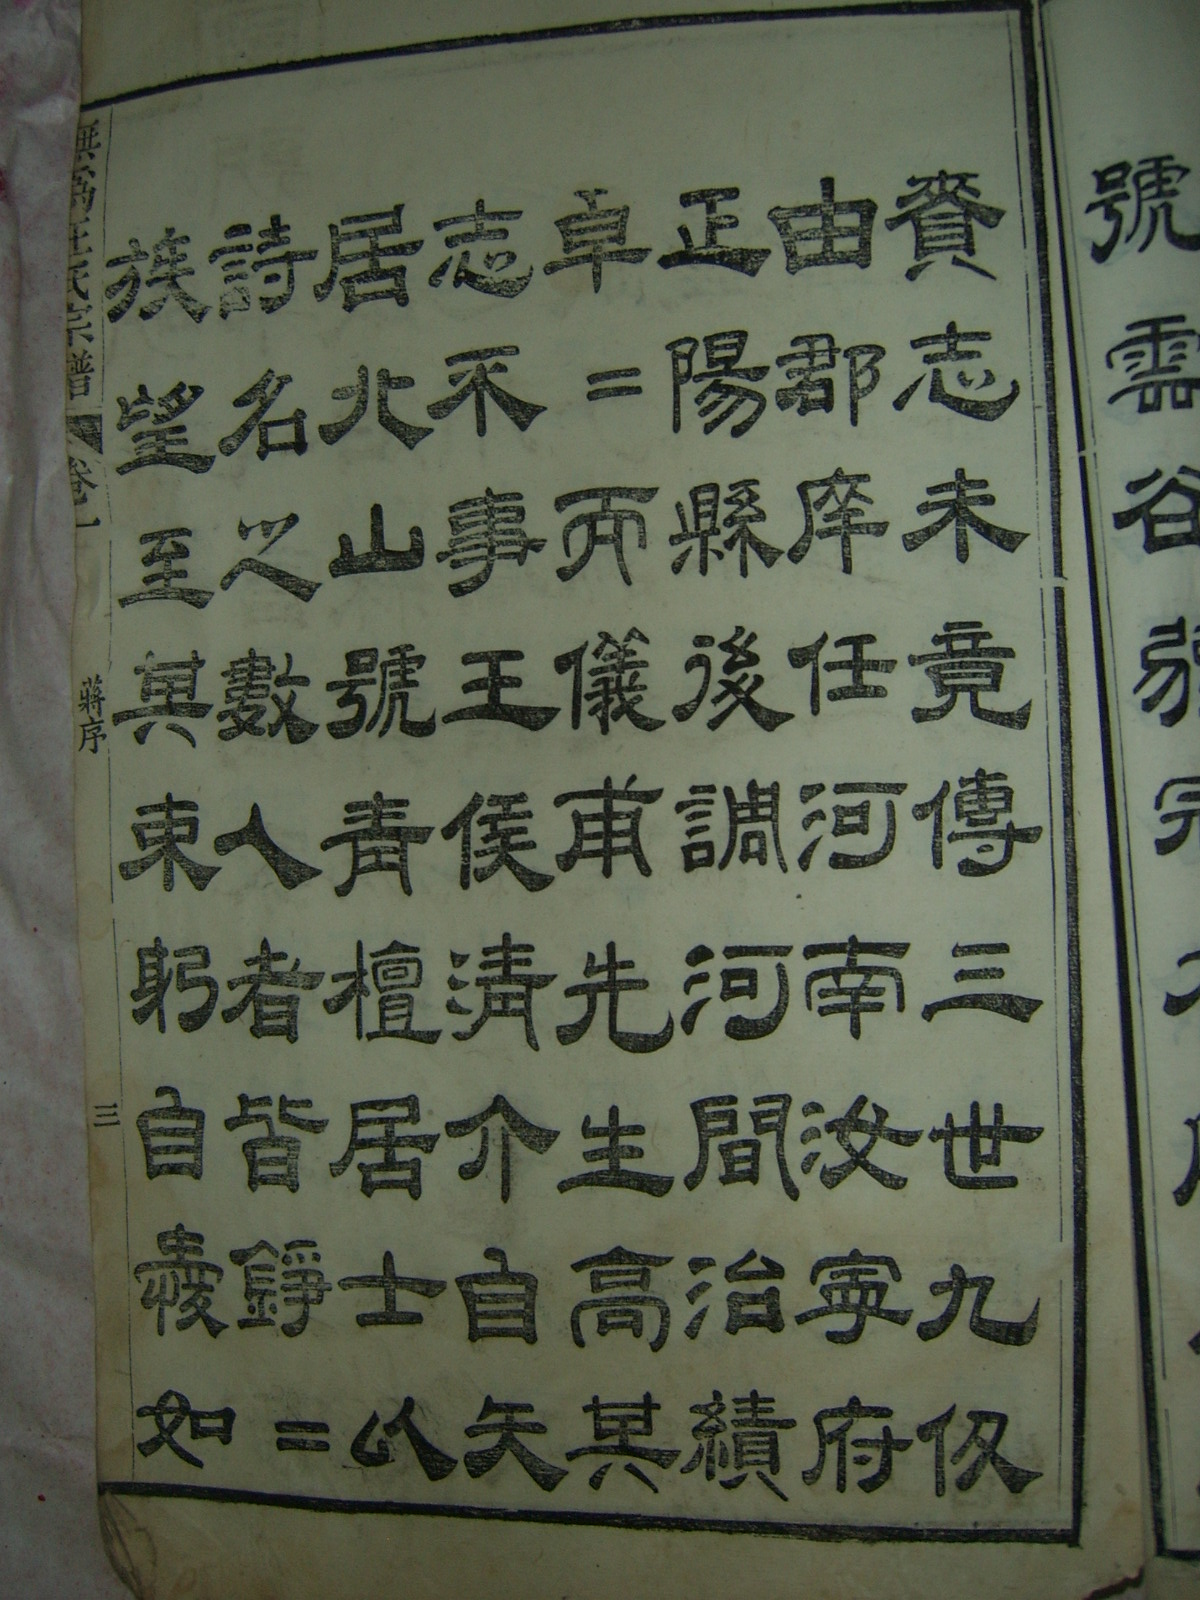 號雲谷
賚志未竟傳三世九伋
由郡庠任河南汝寧府
正陽縣後調河間治績
卓=丙儀甫先生高其
志不事王侯清介自矢
居北山號青檀居士以
詩名之數人者皆錚=
族望至其束躬自愛如
宗譜
卷一
蔣序
三